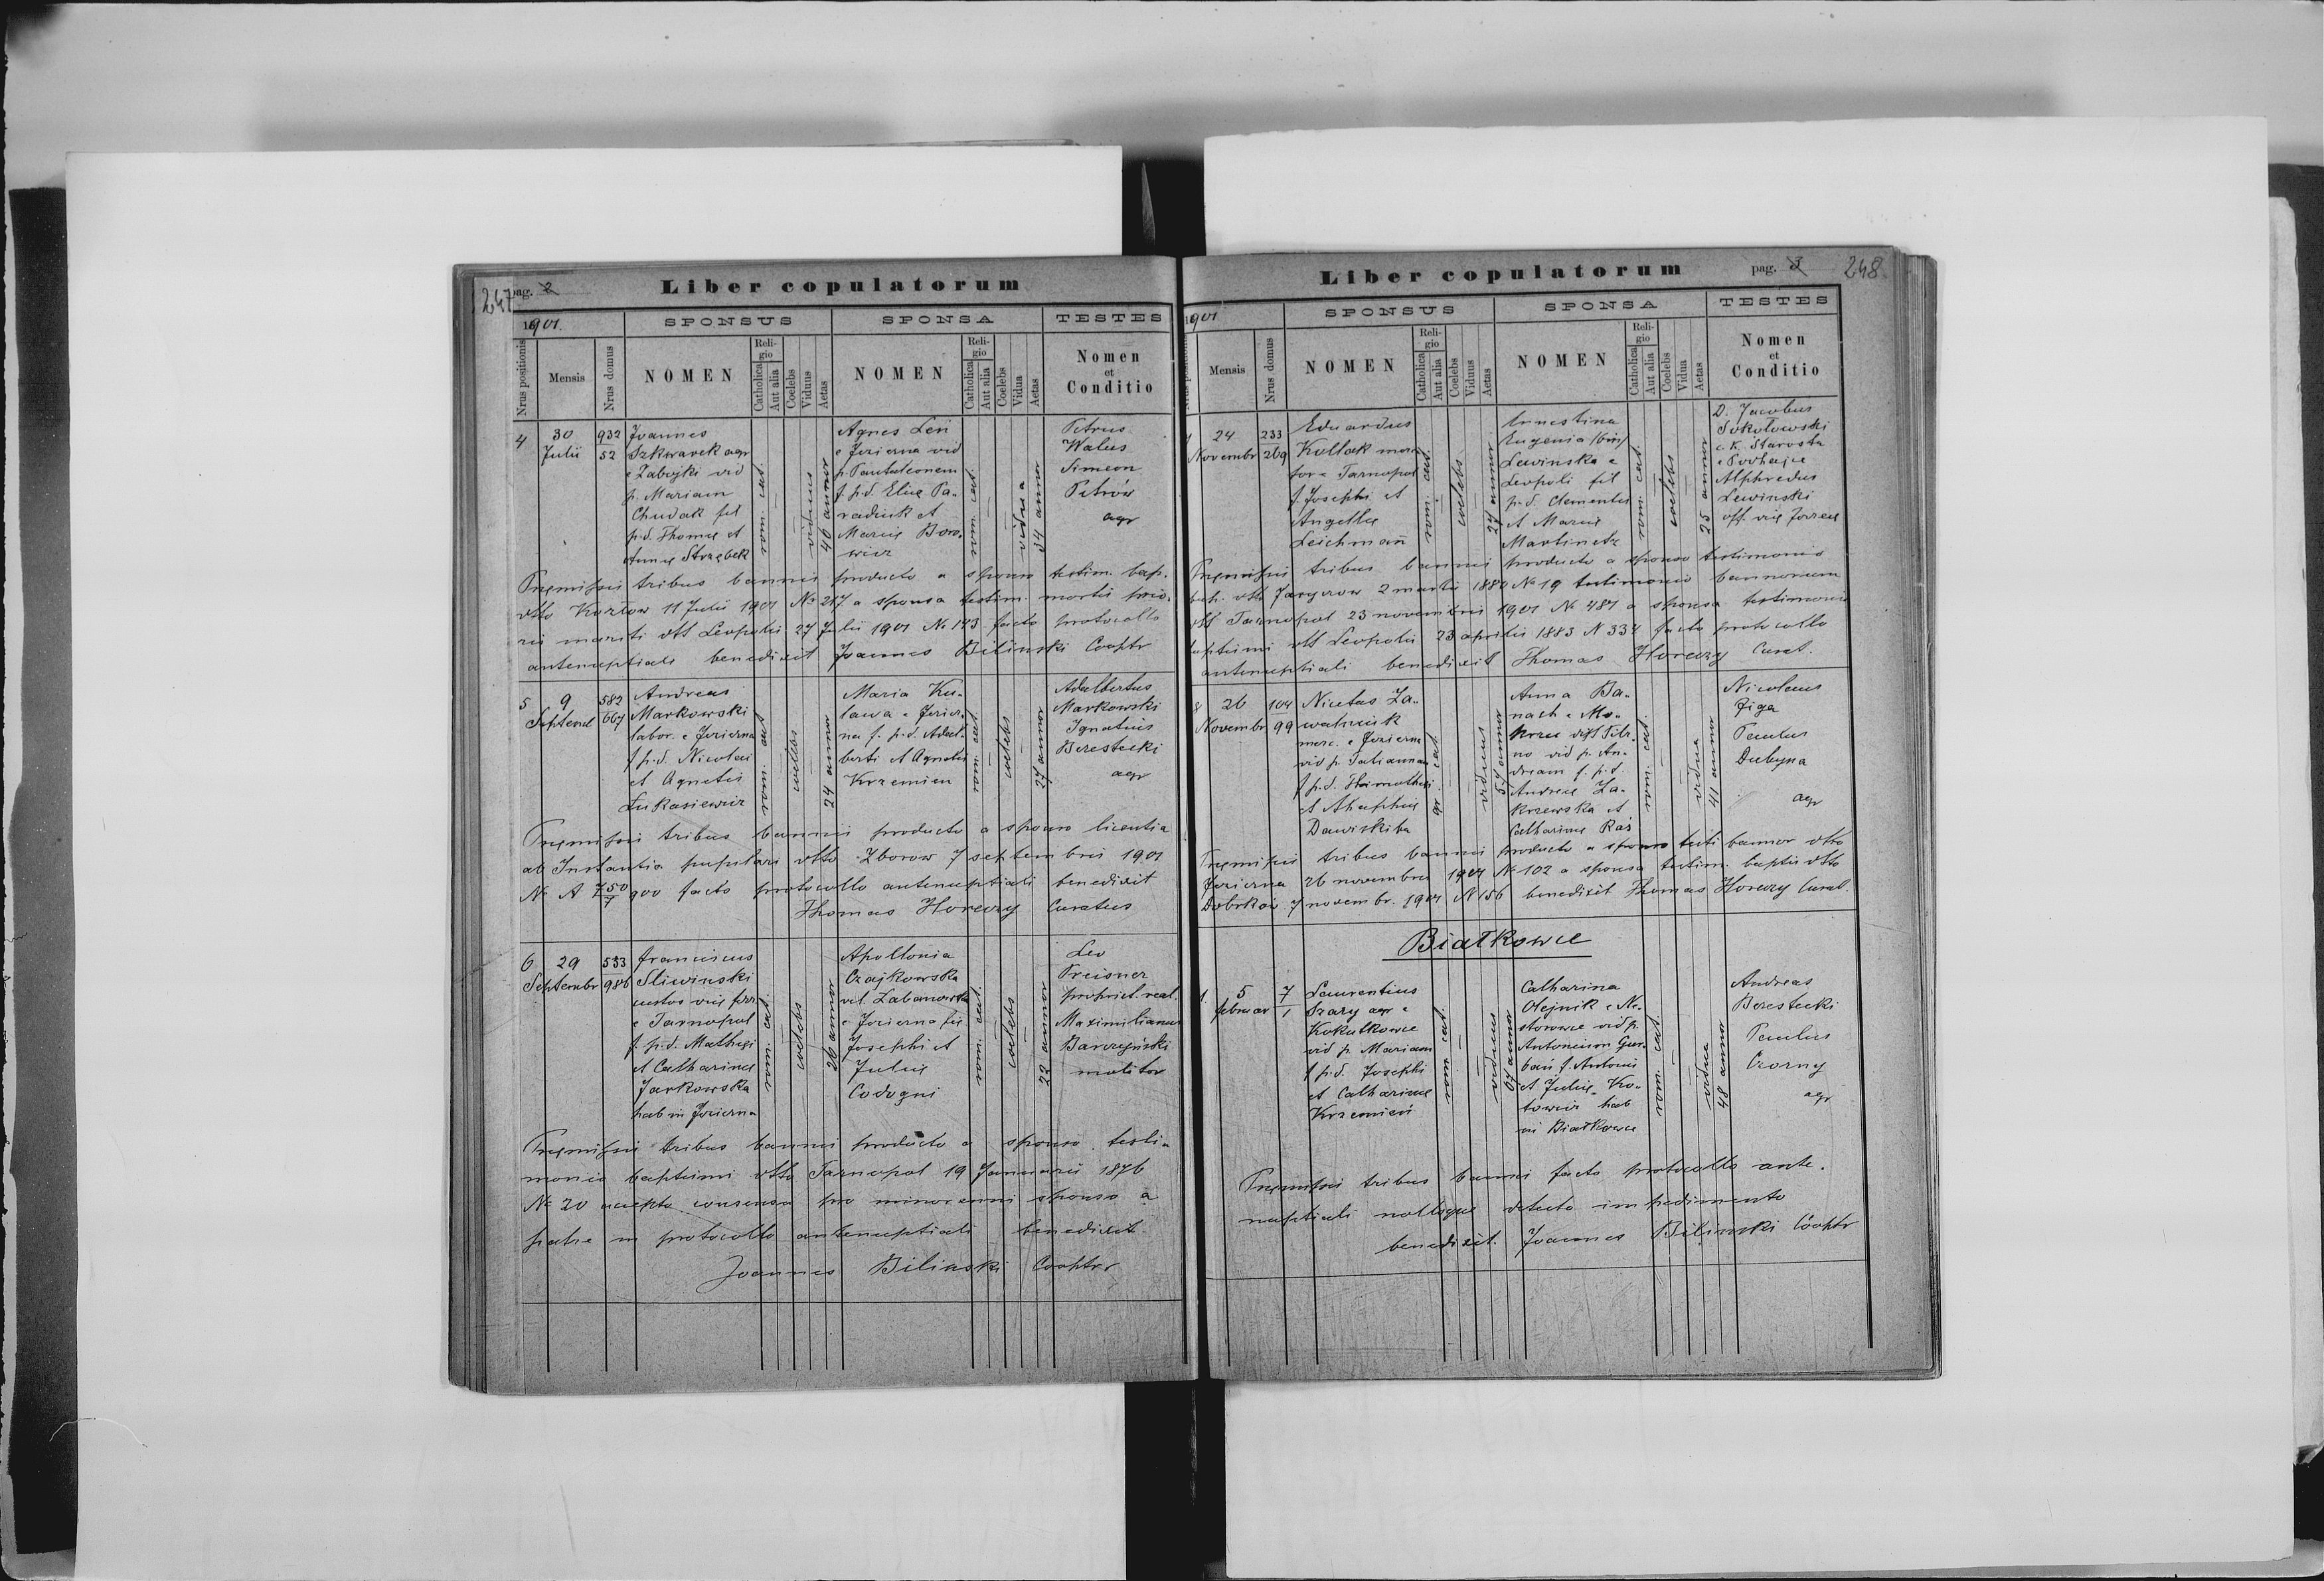 247 pag. 2
Liber copulatorum
1901.
SPONSUS
SPONSA
TESTES
Nrus positionis
Mensis
Nrus domus
NOMEN
Religio
Catholica
Aut alia
Coelebs
Viduus
Aetas
NOMEN
Religio
Catholica
Aut alia
Coelebs
Vidua
Aetas
Nomen
et
Conditio
4
30
Julii
932
52
Joannes
Szkwarek agr
e Zabojki vid
p. Mariam
Chudak fil
p.d. Thomæ et
Annæ Strzębek
rom. cat.
viduus
40 annor
Agnes Leń
e Jezierna vid
p. Pantaleonem
f. p.d. Eliæ Pa-
raduik et
Mariæ Boro-
wicz
rom. cat.
vidua
34 annor
Petrus
Walus
Simeon
Petrów
agr
Præmissis tribus bannis producto a sponso testim. bap.
dtto Kozłow 11 Julii 1901 № 217 a sponsa testim. mortis prio-
ris mariti dtt Leopolis 27 Julii 1901 № 173 facto protocollo
antenuptiali benedixit Joannes Biliński Cooptr
5
9
Septemb
582
667
Andreas
Markowski
labor. e Jezierna
f p.d. Nicolai
et Agnetis
Łukasiewicz
rom. cat
coelebs
24 annor
Maria Ku-
lawa e Jezier-
na f. p.d. Adal-
berti et Agnetis
Krzemien
rom. cat
coelebs
27 annor
Adalbertus
Markowski
Ignatius
Berestecki
agr
Præmissis tribus bannis producto a sponso licentia
ab Instantia pupilari dtto Zborow 7 septembris 1901
№ A 750/7 900 facto protocollo antenuptiali benedixit
Thomas Horeczy Curatus
6
29
Septembr
533
986
Franciscus
Sliwinski
custos viæ ferr.
e Tarnopol
f. p.d. Mathæi
et Catharinæ
Jarkowska
hab in Jezierna
rom. cat.
coelebs
26 annor
Apollonia
Czajkowska
vel. Zabanowska
e Jezierna fil
Josephi et
Juliæ
Codogni
rom. cat.
coelebs
22 annor
Leo
Preisner
propriet. real.
Maximilianus
Barczyński
molitor
Præmissis tribus bannis producto a sponso testi-
monio baptismi dtto Tarnopol 19 Januarii 1876
№ 20 accepto consensu pro minorenni sponsa a
patre in protocollo antenuptiali benedixit.
Joannes Bilinski Cooptr
Liber copulatorum
pag. 3 248
1901
SPONSUS
SPONSA
TESTES
Mensis
Nrus domus
NOMEN
Religio
Catholica
Aut alia
Coelebs
Viduus
Aetas
NOMEN
Religio
Catholica
Aut alia
Coelebs
Vidua
Aetas
Nomen
et
Conditio
24
Novembr
233
269
Eduardus
Kollak merca
tor e Tarnopol
f. Josephi et
Angelæ
Leichmañ
rom. cat.
coelebs
27 annor
Ernestina
Eugenia /bin/
Lewinska e
Leopoli fil
p.d. Clementis
et Mariæ
Martinetz
rom. cat.
coelebs
25 annor
D. Jacobus
Sokołowski
c. k. Starosta
e Podhajce
Alphredus
Lewinski
off. viæ ferreæ
Præmissis tribus bannis producto a sponso testimonio
bap. dtto Jaryczow 2 martii 1880 № 19 testimonio bannorum
dtt Tarnopol 23 novembris 1901 № 487 a sponsa testimonio
baptismi dtt Leopolis 23 aprilis 1883 N 334 facto protocollo
antenuptiali benedixit Thomas Horeczy Curat.
8
26
Novembr
104
99
Nicetas Za-
watniuk
merc. e Jezierna
vid p. Tatiannam
f p.d. Thimothei
et Ahaphiæ
Dawiskiba
gr. cat.
viduus
54 annor
Anna Ba-
nach e Mo-
krzec dist Pilz-
no vid p. An-
dream f. p.d.
Andreæ Za-
krzewska et
Catharinæ Raś
rom. cat.
vidua
41 annor
Nicolaus
Figa
Paulus
Dubyna
agr
Præmissis tribus bannis producto a sponso testi bannor dtto
Jezierna 26 novembris 1901 № 102 a sponsa testim. baptis dtto
Dobrków 7 novembr. 1901 N 156 benedixit Thomas Horeczy Curat.
Białkowce
1.
5
februar
7
1
Laurentius
Szary agr e
Kokutkowce
vid p. Mariam
f p.d. Josephi
et Catharinæ
Krzemień
rom cat.
viduus
67 annor
Catharina
Olejnik e Ne-
stowce vid p.
Antonium Gur-
bań f. Antonii
et Juliæ Ko-
towicz hab
in Białkowce
rom. cat.
vidua
48 annor
Andreas
Berestecki
Paulus
Czorny
agr
Præmissis tribus bannis facto protocollo ante-
nuptiali nulloque detecto impedimento
benedixit. Joannes Biliński Cooptr